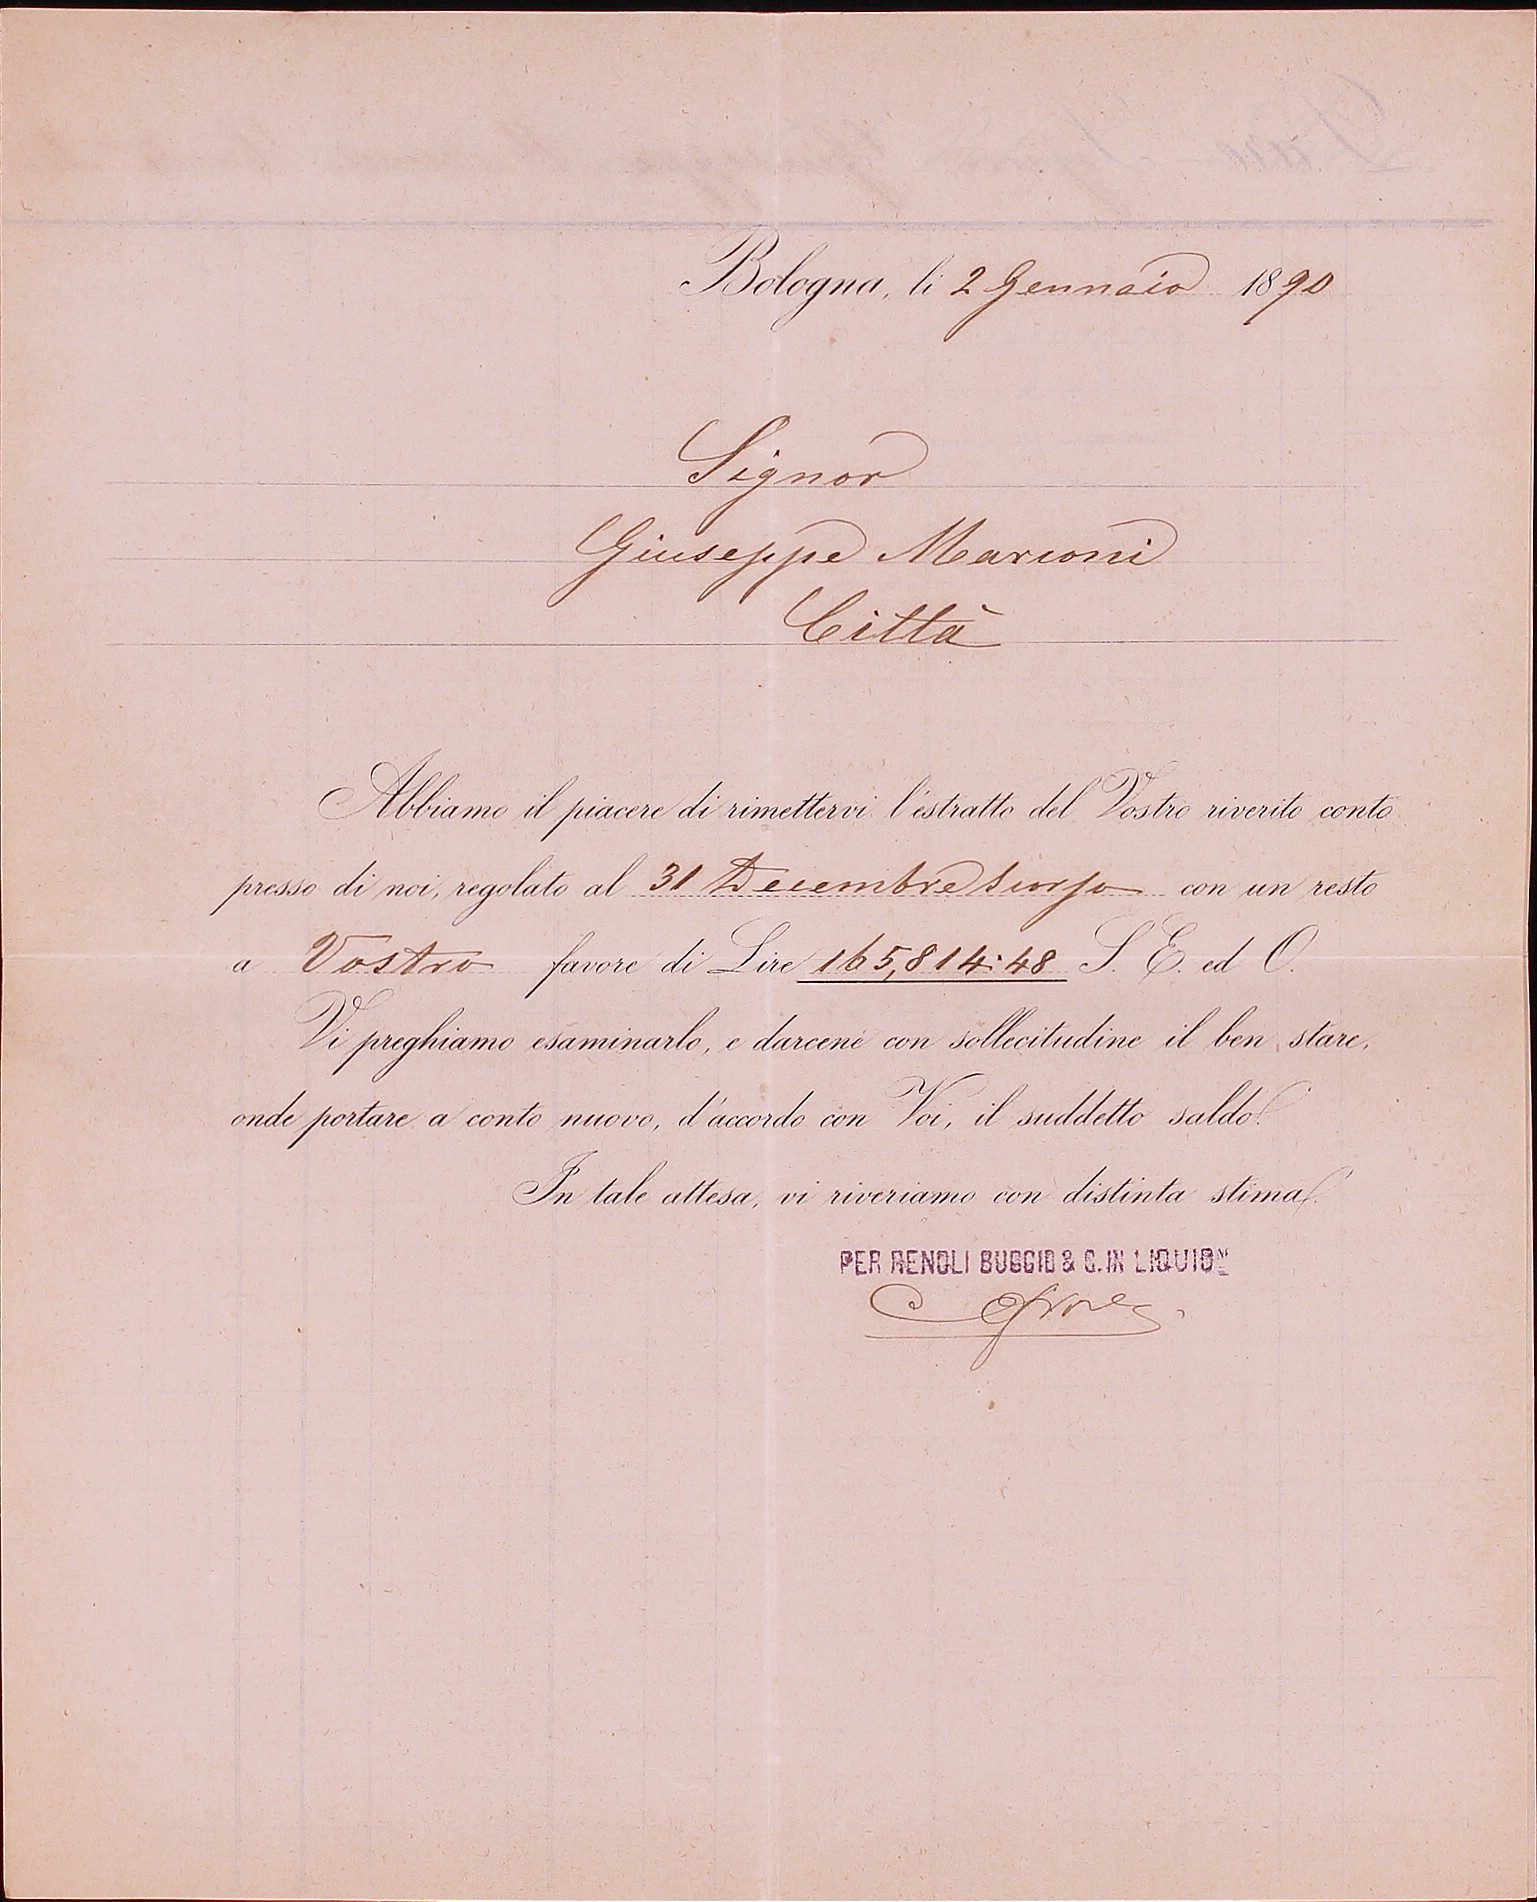 Bologna, li 2 Gennaio 1890
Signor
Giuseppe Marconi
Città
Abbiamo il piacere di rimettervi l'estratto del Vostro riverito conto
presso di noi, regolato al 31 Decembre scorso con un resto
a Vostro favore di Lire 165,814:48 S. E. ed O.
Vi preghiamo esaminarlo, e darcene con sollecitudine il ben stare,
onde portare a conto nuovo, d'accordo con Voi, il suddetto saldo.
In tale attesa, vi riveriamo con distinta stima.
PER RENOLI BUGGIO & C. IN LIQUIDN